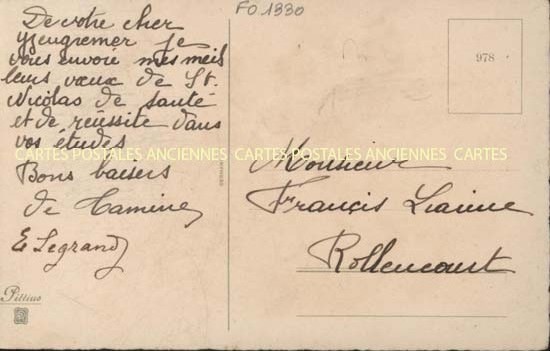 FO 1330
De votre cher
je
vous envoie mes meil
leurs vœux de St.
Nicolas de santé
et de réussite dans
vos études
Bons baisers
de Tamines
E Legrand
Pittius
978
Monsieur
Francis
Rollencourt
GERMANY
CARTES POSTALES ANCIENNES CARTES POSTALES ANCIENNES CARTES